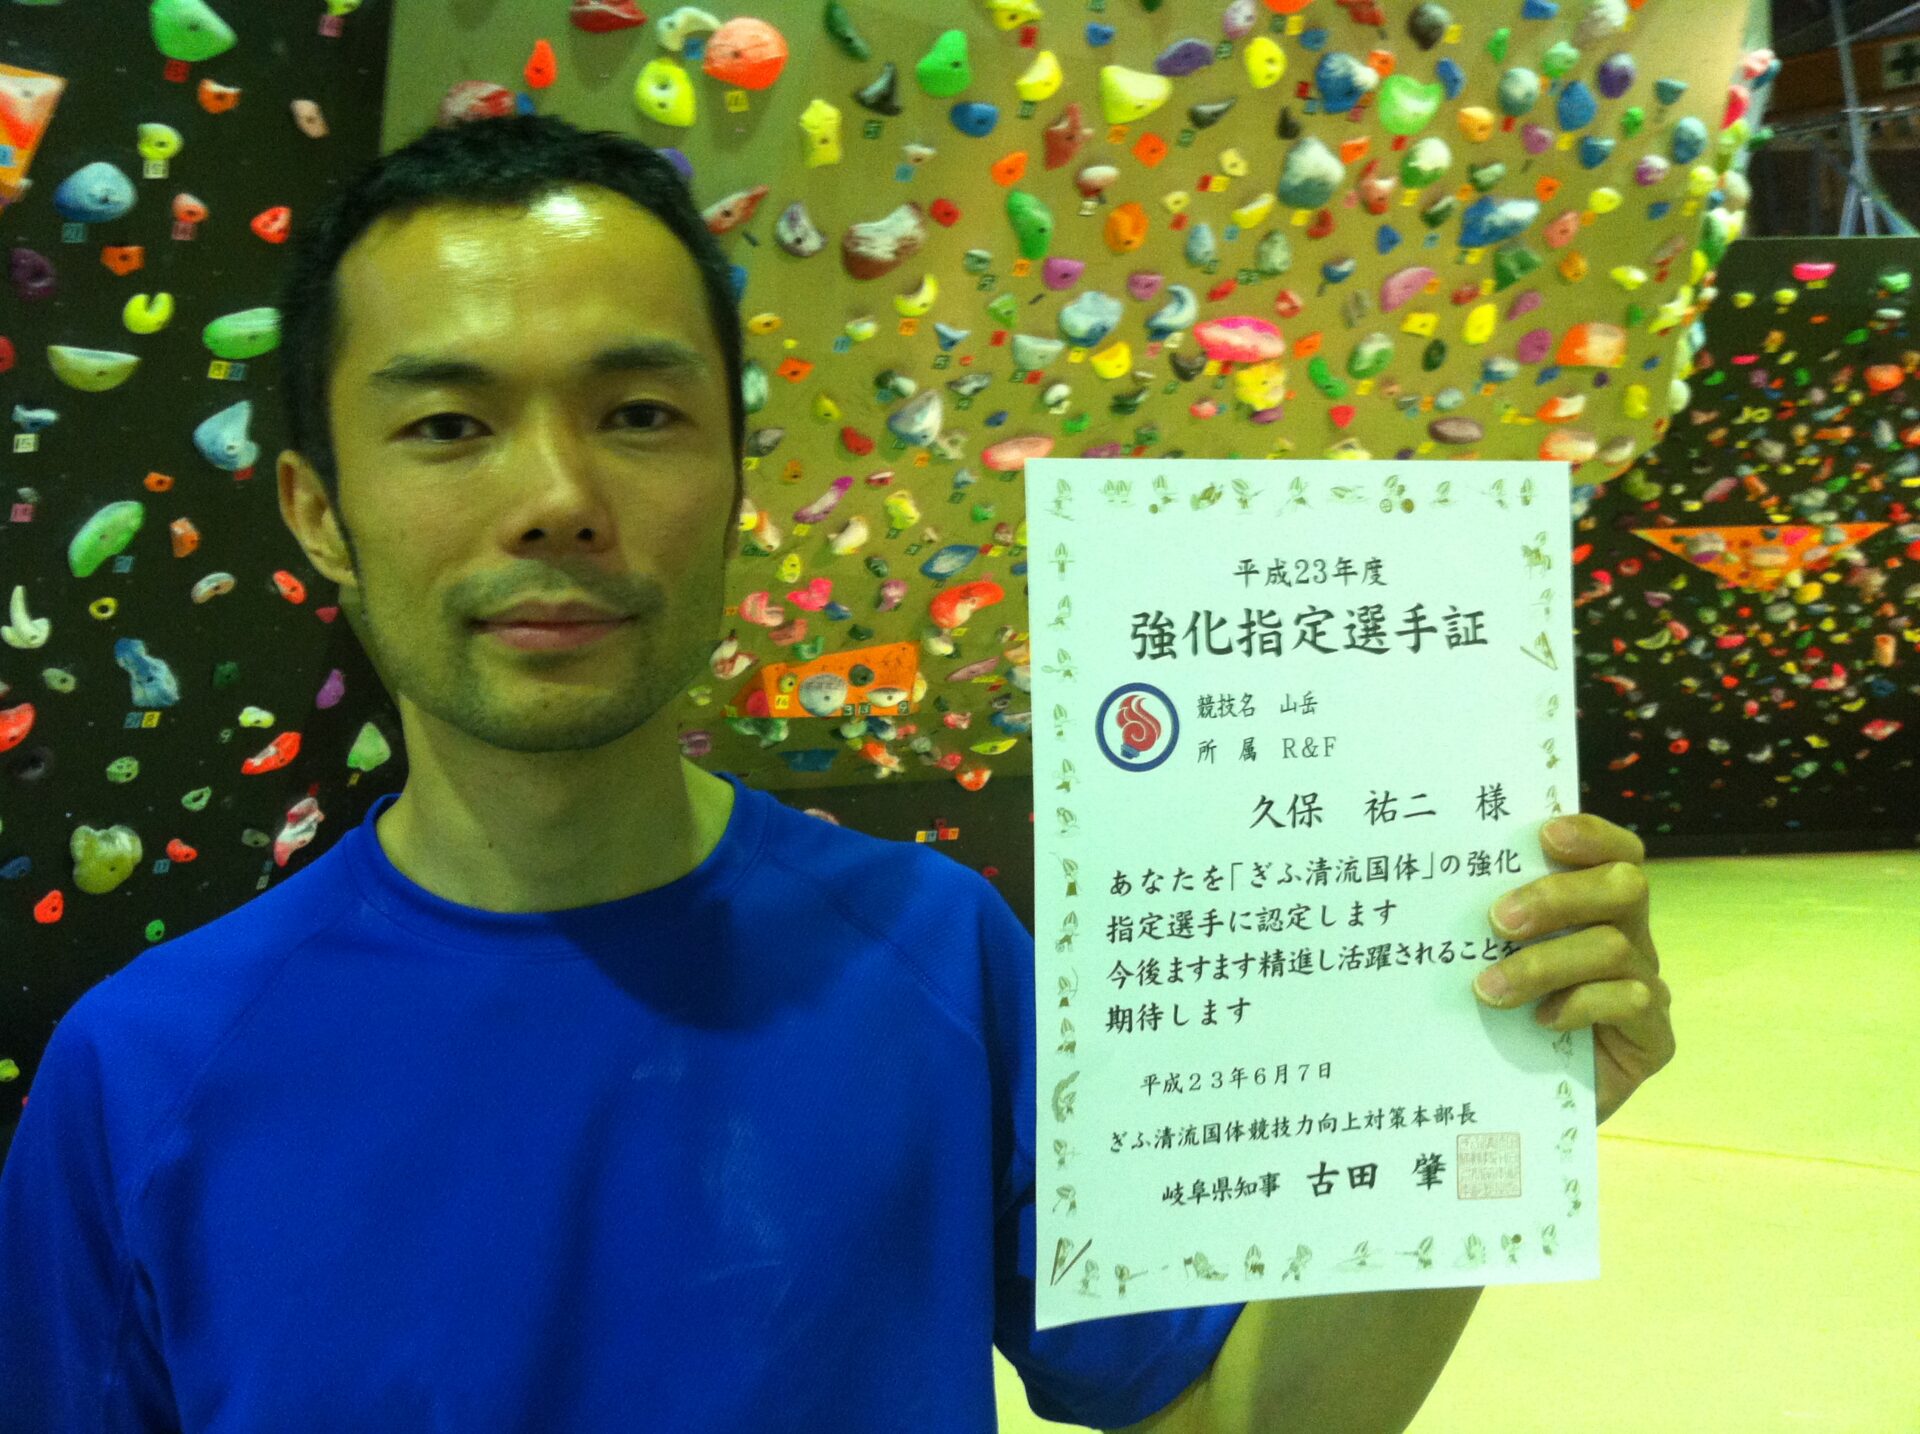 平成23年度
強化指定選手証
競技名 山岳
所 属 R&F
久保 祐二 様
あなたを「ぎふ清流国体」の強化
指定選手に認定します
今後ますます精進し活躍されることを
期待します
平成23年6月7日
ぎふ清流国体競技力向上対策本部長
岐阜県知事 古田 肇